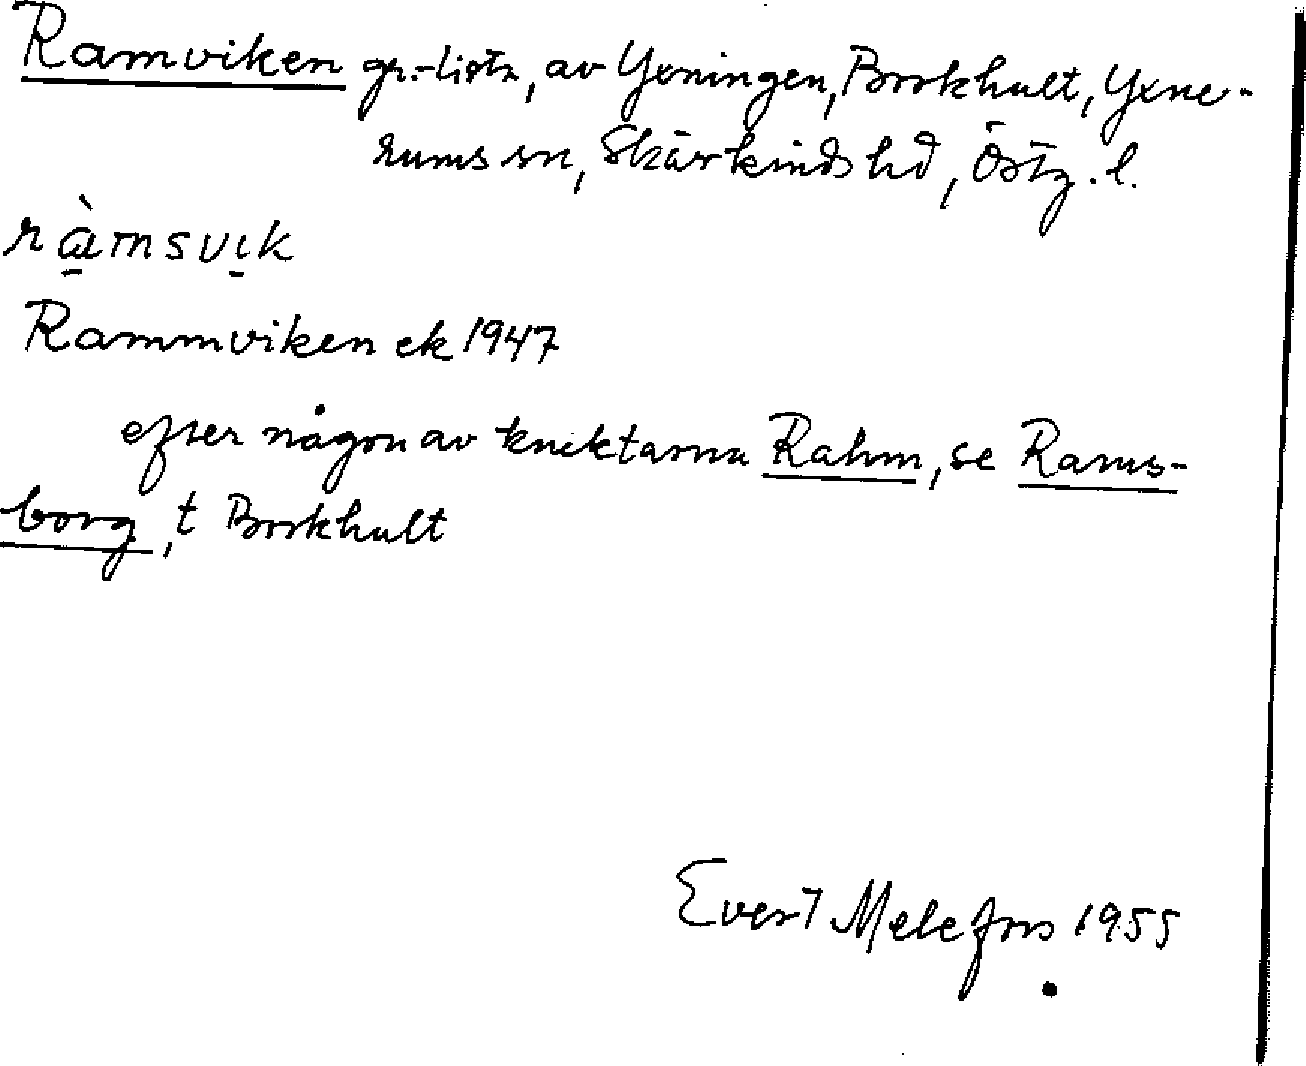 Ramviken , av Yxningen, Borkhult, Yxne-
rums sn, Skärkinds hd, Östg. l.
ràmsvik
Rammviken ek 1947
efter någon av knektarna Rahm, se Rams-
borg, t Borkhult
Evert Melefors 1955